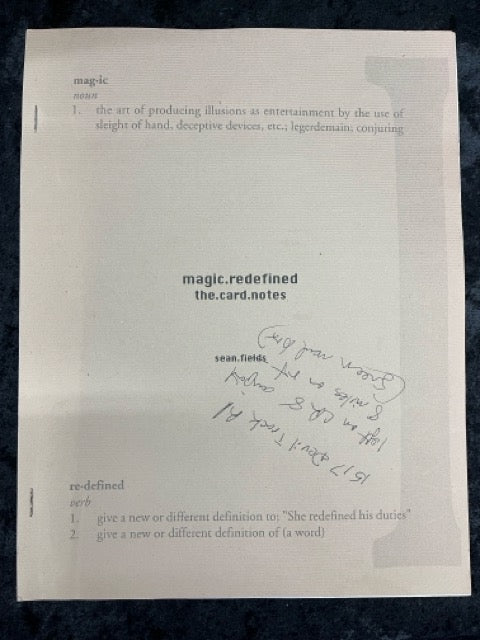 mag·ic
noun
1. the art of producing illusions as entertainment by the use of
sleight of hand, deceptive devices, etc.; legerdemain; conjuring
magic.redefined
the.card.notes
sean.fields
1517 Devil Track Rd
left on
8 miles on
(Green
re·defined
verb
1. give a new or different definition to; "She redefined his duties"
2. give a new or different definition of (a word)